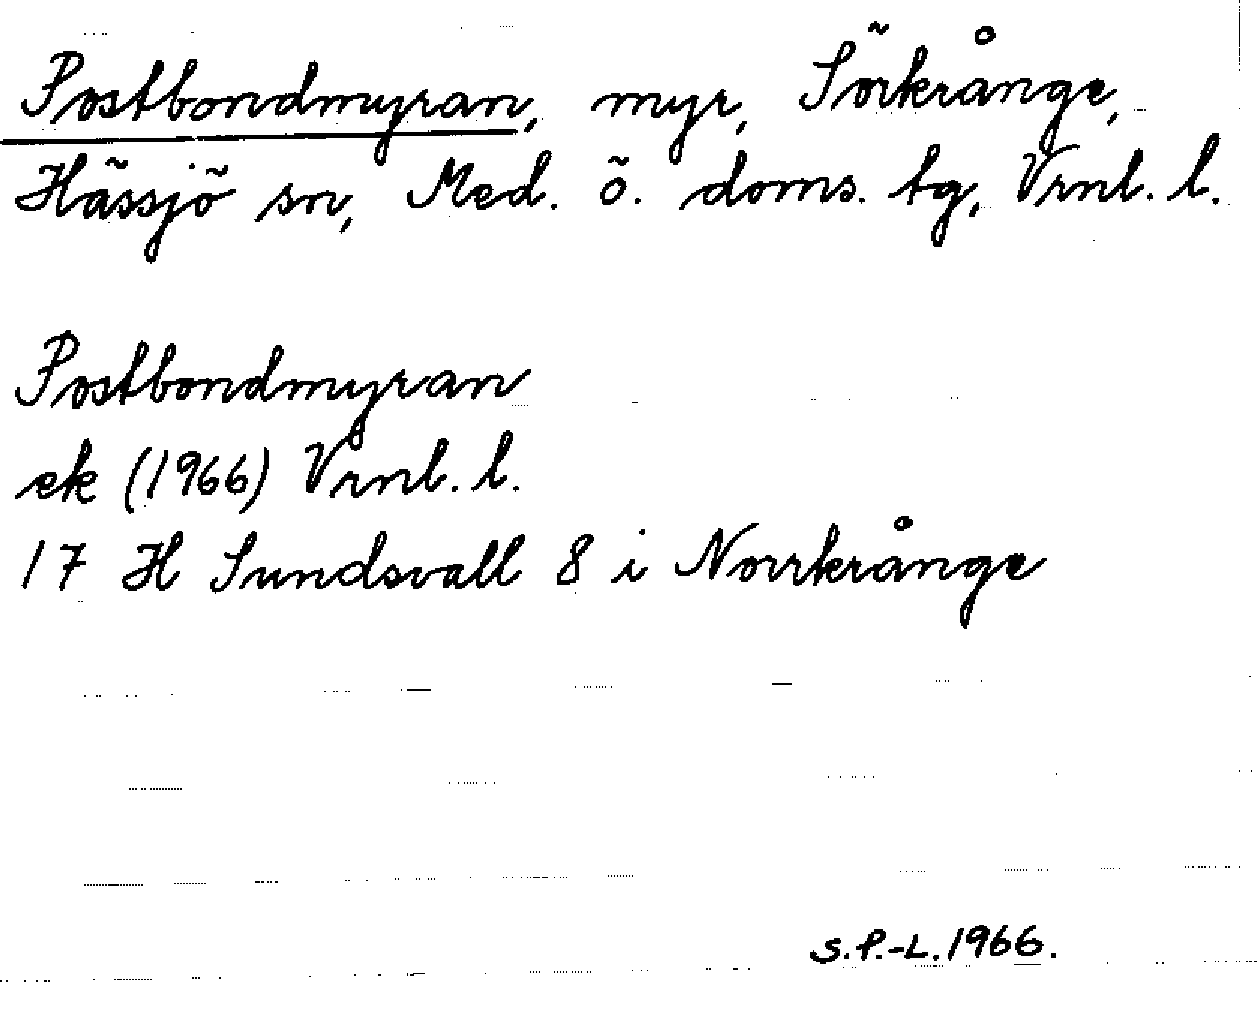 Postbondmyran, myr, Sörkrånge,
Hässjö sn, Med. ö. doms. tg, Vrnl. l.
Postbondmyran
ek (1966) Vrnl. l.
17 H Sundsvall 8 i Norrkrånge
S.P.-L. 1966.